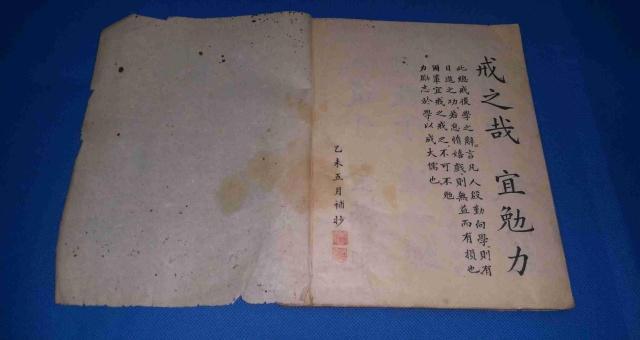 戒之哉 宜勉力
此總戒後學之辭言凡人殷勤向學則有
日進之功若怠惰嬉戲則無益而有損也
爾輩宜戒之戒之不可不勉
力勵志於學以成大儒也
乙未五月補抄